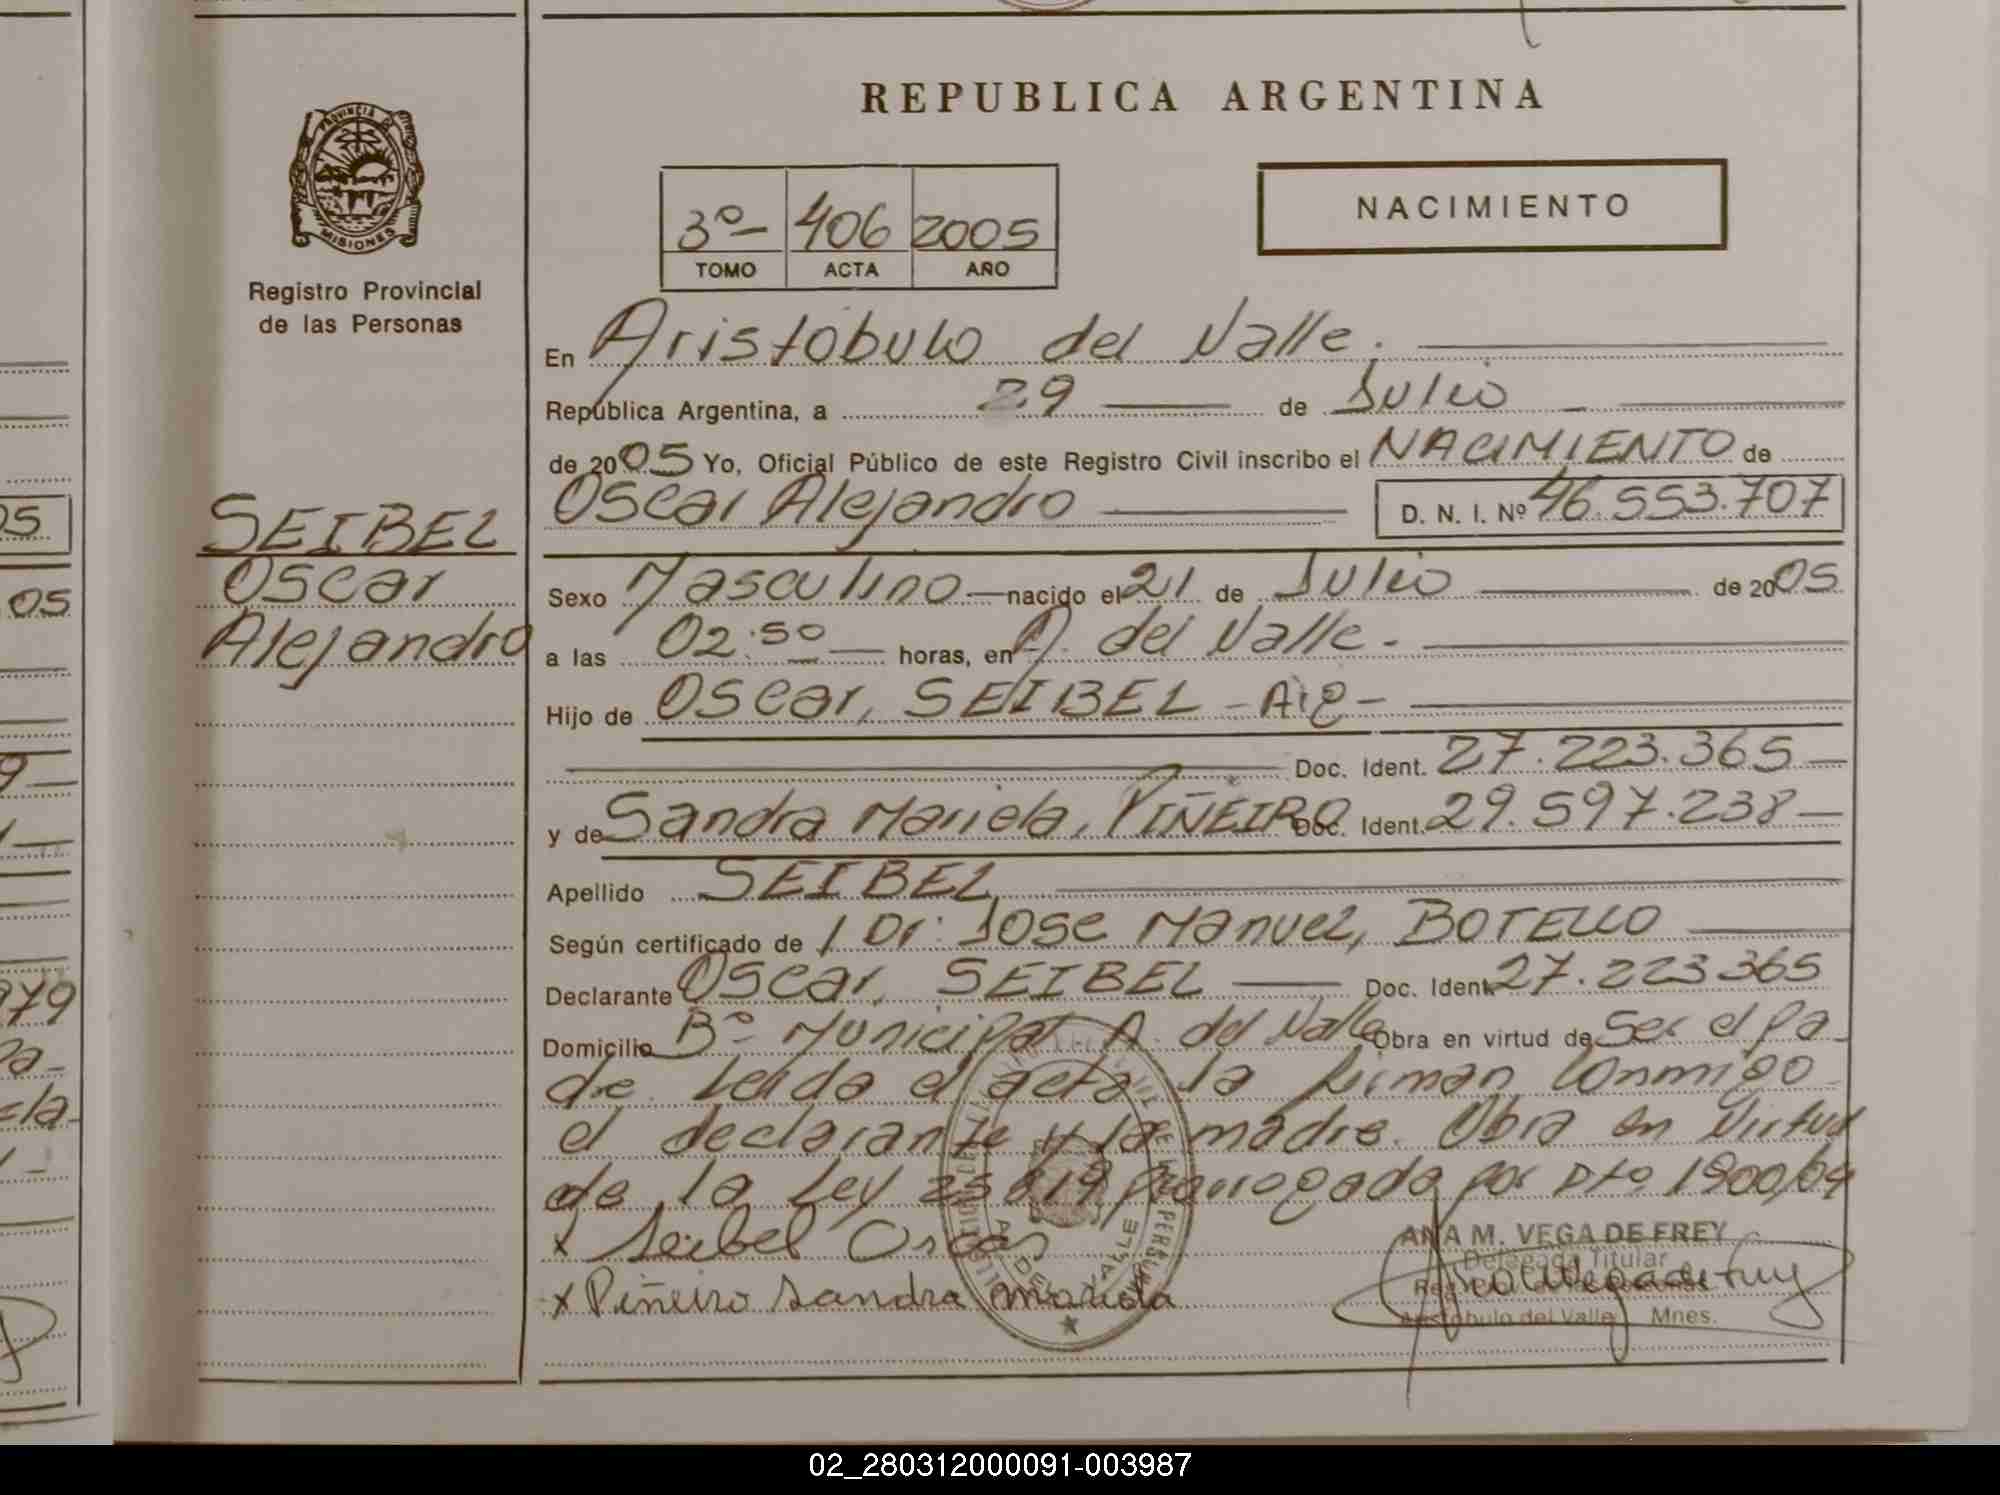 REPUBLICA ARGENTINA
PROVINCIA DE
MISIONES
Registro Provincial
de las Personas
3º- 406 2005
TOMO ACTA AÑO
NACIMIENTO
En Aristóbulo del Valle.
República Argentina, a 29 de Julio
de 2005 Yo, Oficial Público de este Registro Civil inscribo el NACIMIENTO de
Oscar Alejandro D. N. I. Nº 46.553.707
SEIBEL
Oscar
Alejandro
Sexo Masculino - nacido el 21 de Julio de 2005
a las 02:50 horas, en A. del Valle.-
Hijo de Oscar, SEIBEL -
Doc. Ident. 27.223.365-
y de Sandra Mariela, PIÑEIRO Doc. Ident. 29.597.238-
Apellido SEIBEL
Según certificado de / Dr: Jose Manuel, BOTELLO
Declarante Oscar, SEIBEL Doc. Ident. 27.223365
Domicilio Bº Municipal A. del Valle Obra en virtud de Ser el Pa-
dre. Leida el acta la firman Conmigo
el declarante y la madre. Obra en Virtud
de la Ley prorrogada por Dto 1900/04
x Seibel Oscar
x Piñeiro Sandra Mariela
ANA M. VEGA DE FREY
Delegada Titular
Aristóbulo del Valle Mnes.
05
05
9-
979
02_280312000091-003987